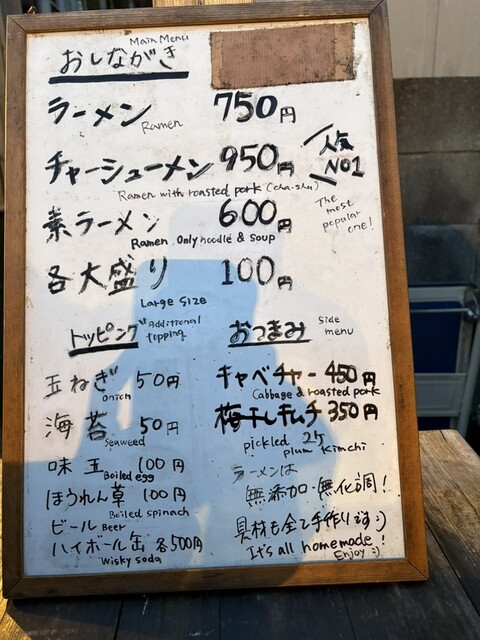 Main Menu
おしながき
ラーメン 750円
Ramen
チャーシューメン 950円 人気 NO1
Ramen with roasted pork (cha-shu)
The most popular one!
素ラーメン 600円
Ramen Only noodle & soup
各大盛り 100円
Large Size
トッピング Additional topping
玉ねぎ 50円
onion
海苔 50円
Seaweed
味玉 100円
Boiled egg
ほうれん草 100円
Boiled spinach
ビール Beer
ハイボール缶 各500円
Wisky soda
おつまみ Side menu
キャベチャー 450円
Cabbage & roasted pork
梅干しキムチ 350円
pickled plum kimchi
ラーメンは
無添加・無化調!
具材も全て手作りです:)
It's all homemade!
Enjoy :)